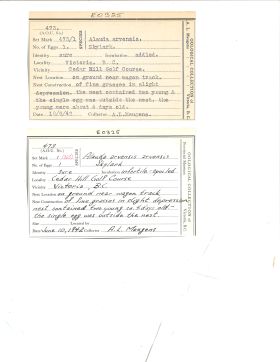 E0325
473.
(A.O.U. No.)
Set Mark 473/1 Alauda arvensis.
No. of Eggs 1. Skylark.
Identity sure Incubation addled.
Locality Victoria, B. C.
Vicinity Cedar Hill Golf Course.
Nest Location on ground near wagon track.
Nest Construction of fine grasses in slight
depression, the nest contained two young &
the single egg was outside the nest. the
young were about 4 days old.
Date Collector A.L.Meugens.
OOLOGICAL COLLECTION of
A. L. Meugens, Victoria, B.C.
E0325
473
(A.O.U. No.)
Set Mark Alauda arvensis arvensis
No. of Eggs 1 Skylark
Identity sure Incubation infertile-spoiled
Locality Cedar Hill Golf Course
Vicinity Victoria, B.C.
Nest Location on ground near wagon track
Nest Construction of fine grasses in slight depression
nest contained two young ca 4 days old-
the single egg was outside the nest.
Date June 10, 1942 Collector A.L. Meugens
OOLOGICAL COLLECTION of
Victoria, B.C.